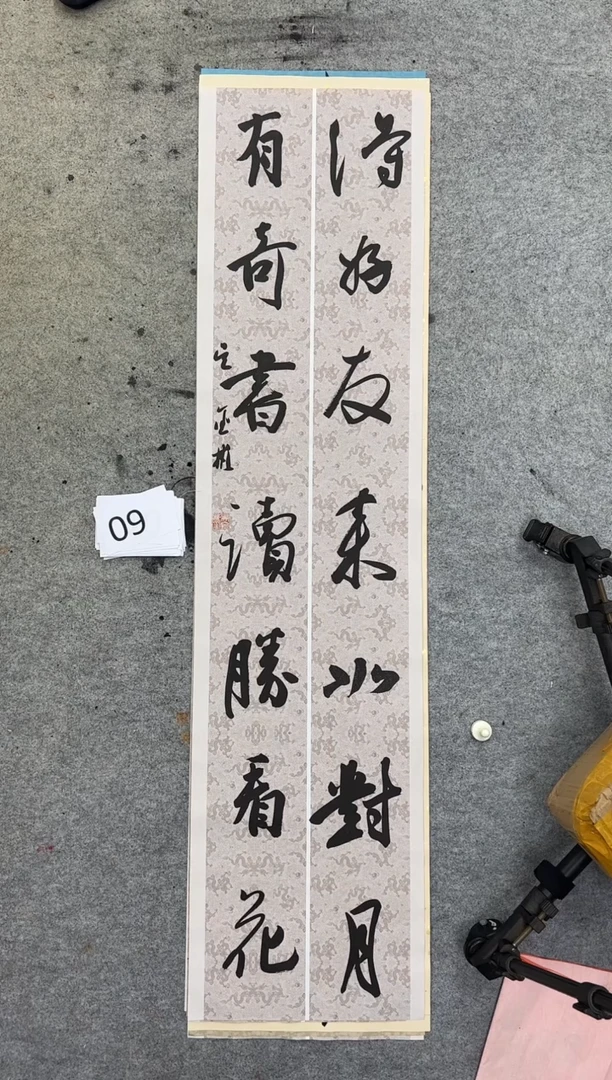 得好友来如對月
有奇書讀勝看花
09